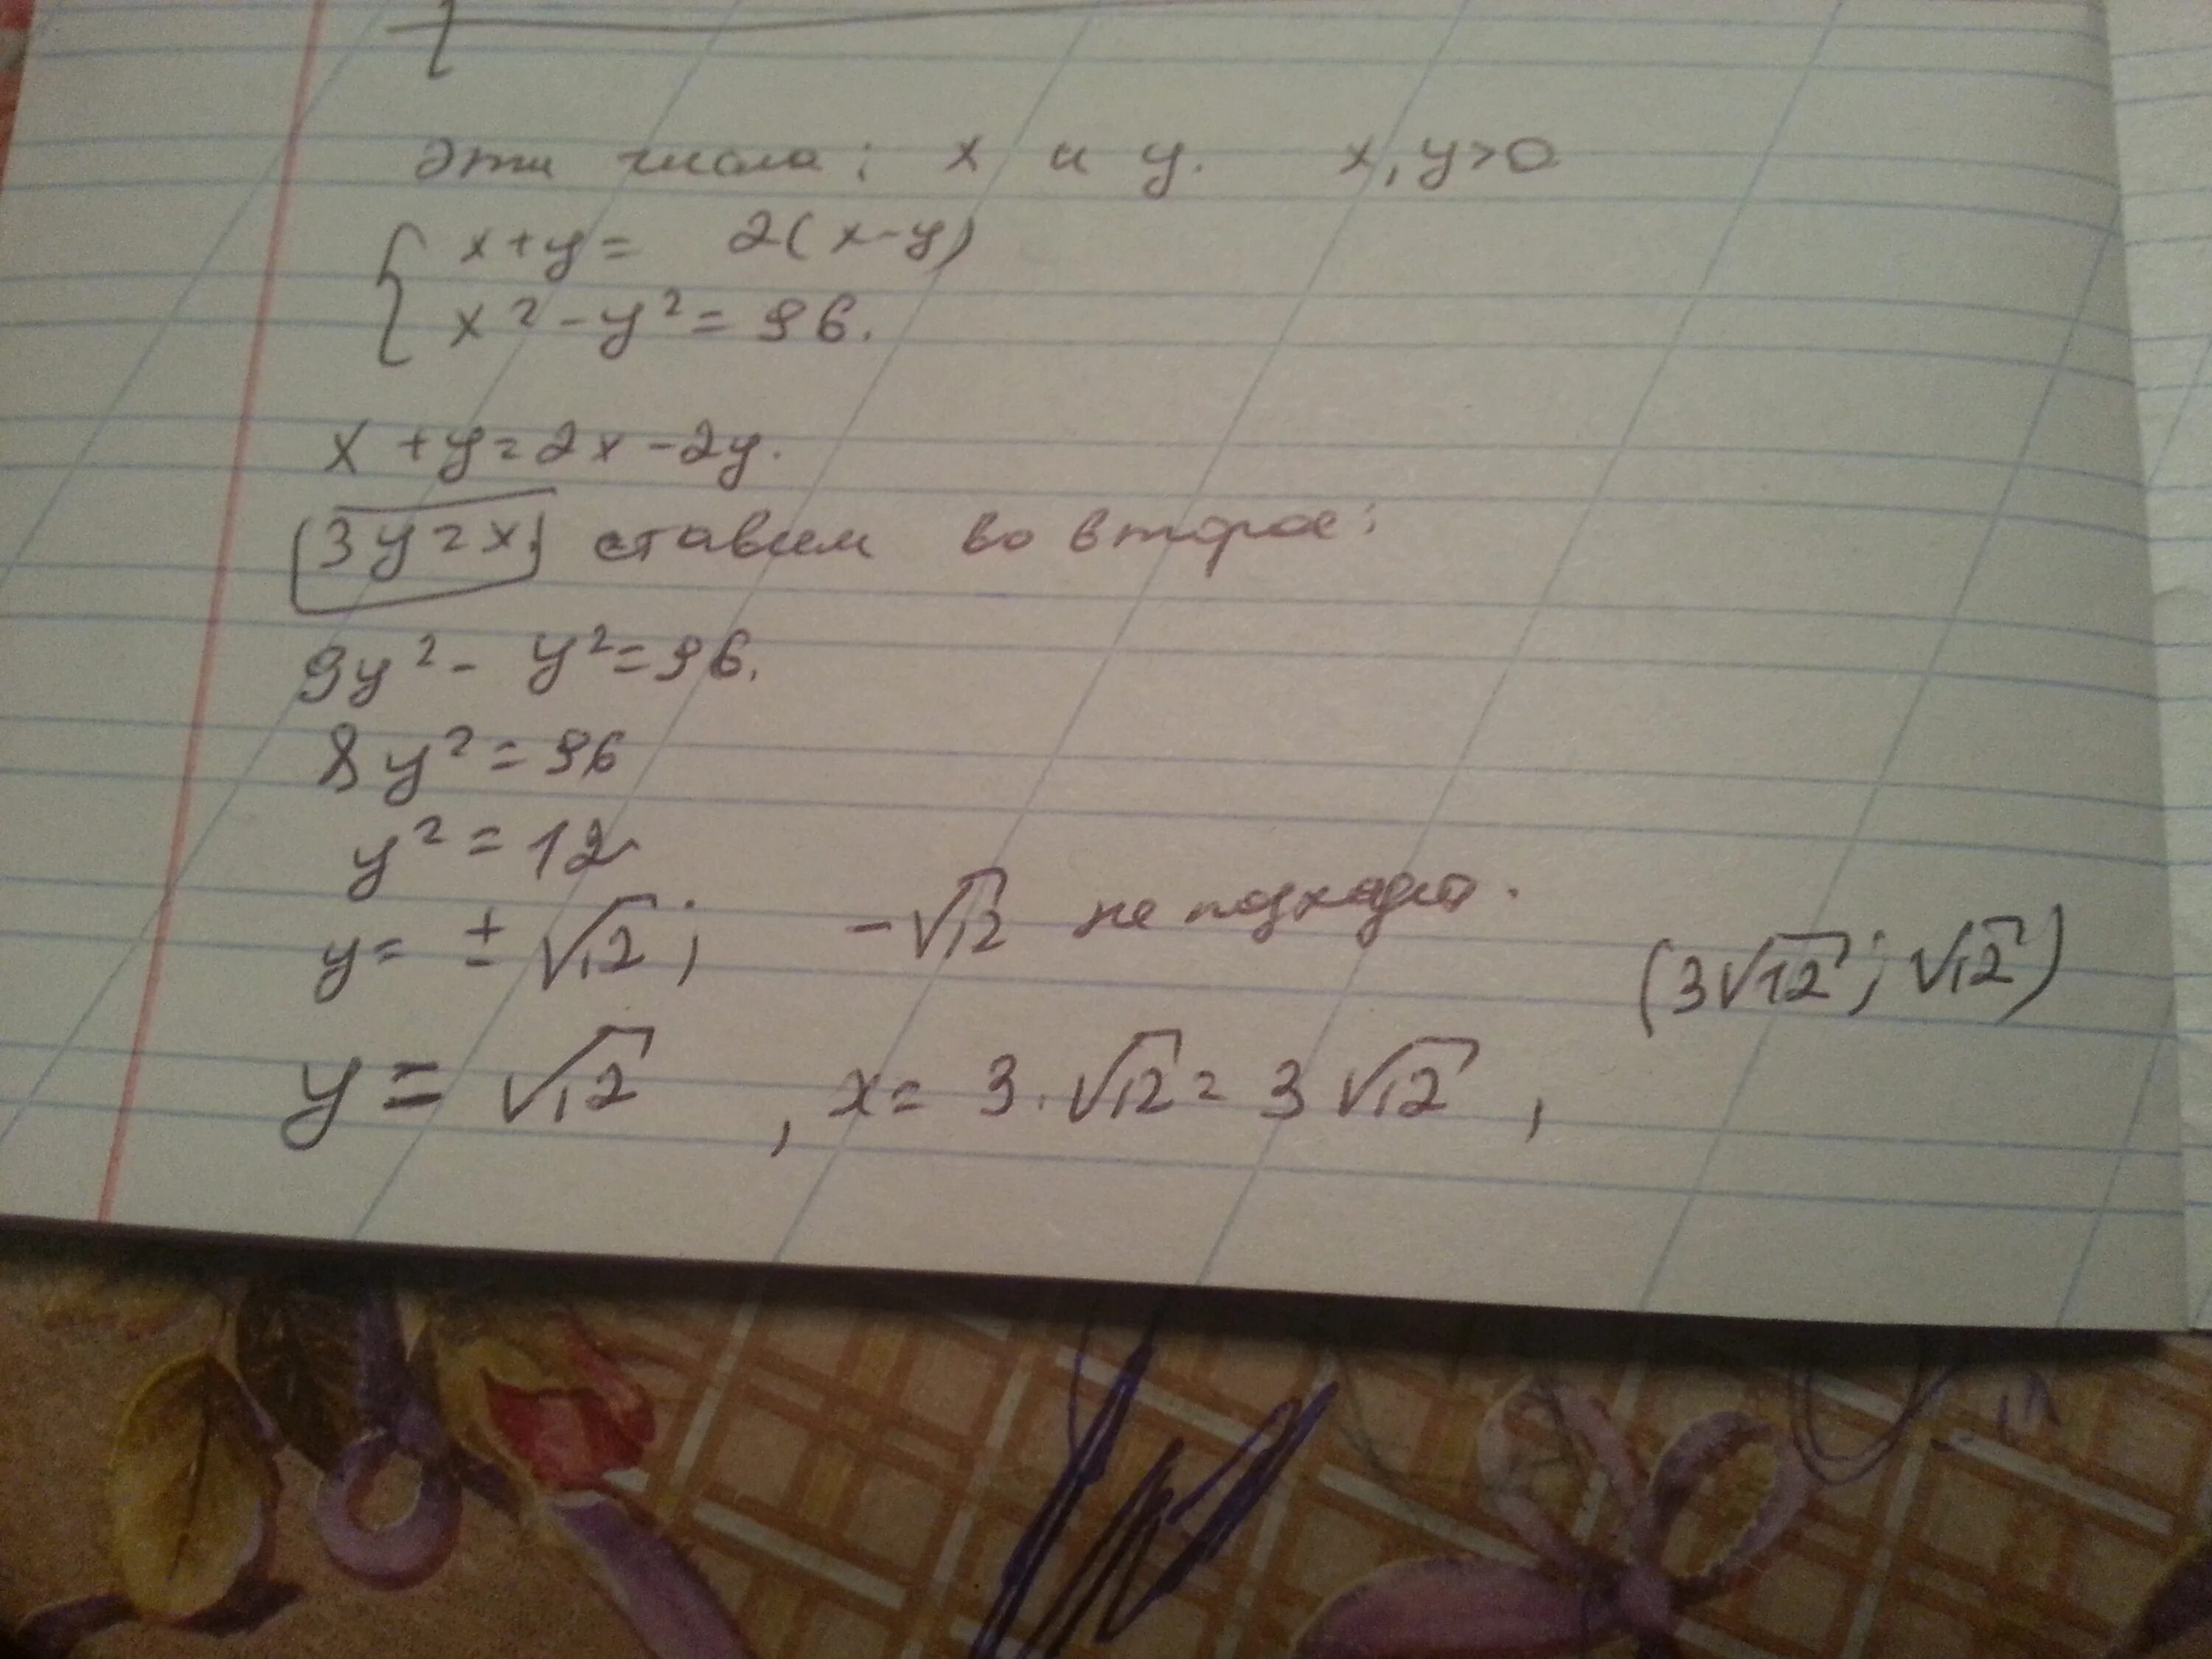 Эти числа: x и y. x, y>0
x+y= 2(x-y)
x²-y²=96.
x+y=2x-2y.
3y=x, ставим во второе:
9y²- y²=96.
8y²=96
y²=12
y= ±√12; -√12 не подходит.
(3√12; √12)
y=√12 , x= 3·√12=3√12 ,